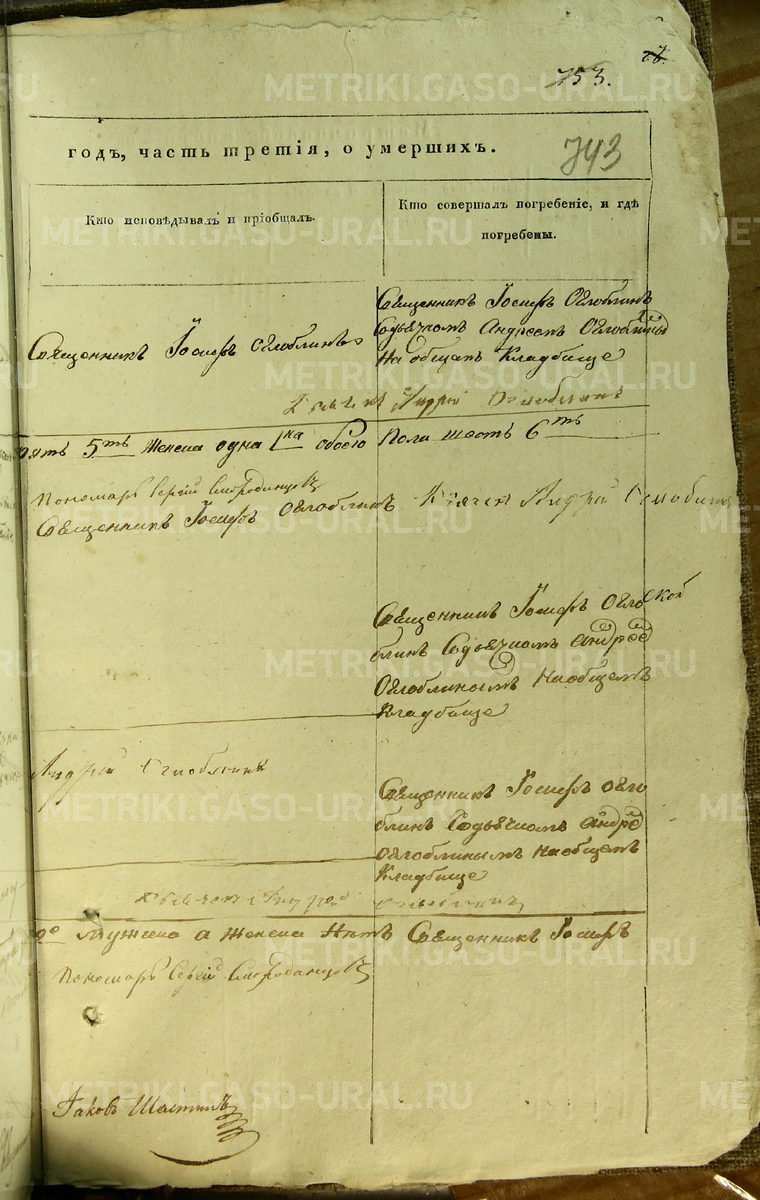 753.
743
годъ, часть третія, о умершихъ.
Кто исповѣдывалъ и пріобщалъ.
Кто совершалъ погребеніе, и гдѣ
погребены.
Священникъ Іосифъ Оглоблинъ
Священникъ Іосифъ Оглоблинъ
Содьячкомъ Андреемъ Оглоблины
На общемъ Кладбище
Андрей Оглоблинъ
пять 5ть Женска одна 1на обоего Пола шесть 6ть
Пономарь Сергій Смородинцовъ
Священникъ Іосифъ Оглоблинъ
Дьячекъ Андрей Оглоблинъ
Священникъ Іосифъ Огло
блинъ Содьячкомъ Андрѣе
Оглоблинымъ На общемъ
Кладбище
Андрей Оглоблинъ
Священникъ Іосифъ Огло
блинъ Содьячкомъ Андрѣе
Оглоблинымъ На общемъ
Кладбище
Мужеска а Женска Нѣтъ Священникъ Іосифъ
Пономарь Сергій Смородинцовъ
Іаковъ Шастинъ
METRIKI.GASO-URAL.RU